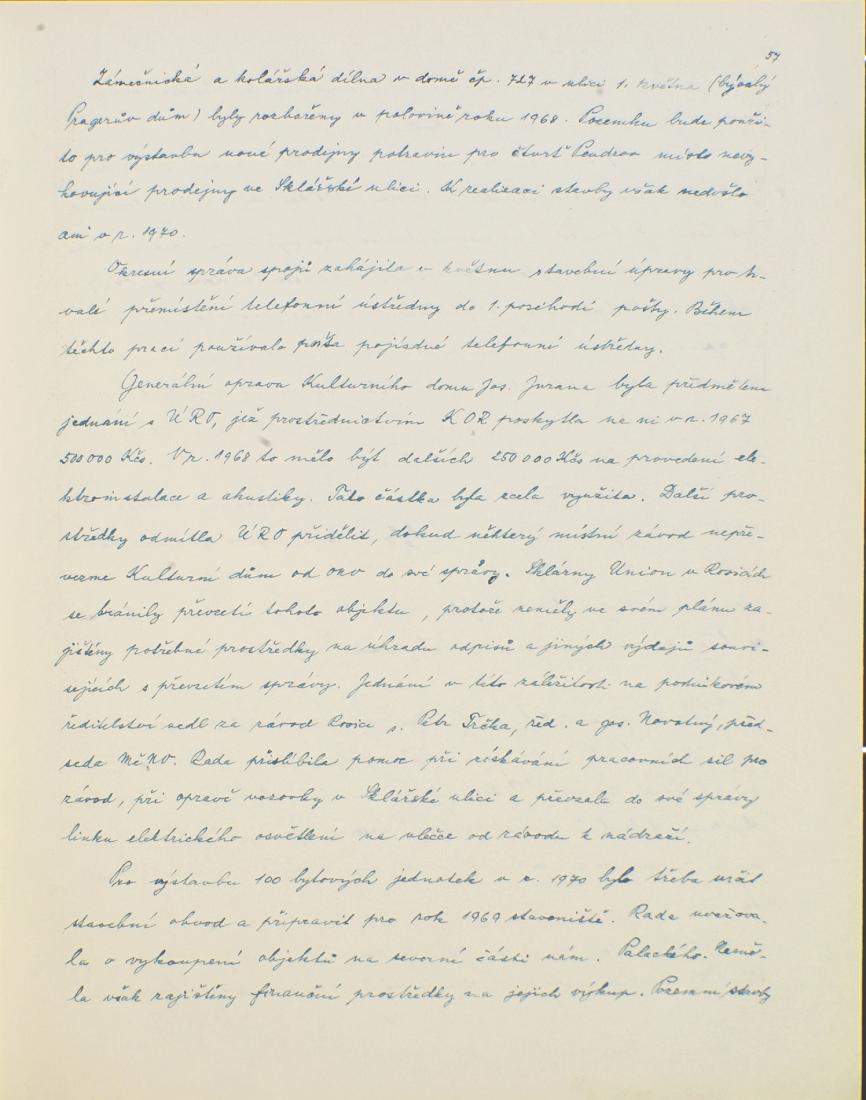 57
Zámečnická a kolářská dílna v domě čp. 727 v ulici 1. května (bývalý
Pragerův dům) byly rozbořeny v polovině roku 1968. Pozemku bude použi-
to pro výstavbu nové prodejny potravin pro čtvrť Pendrov místo nevy-
hovující prodejny ve Sklářské ulici. K realizaci stavby však nedošlo
ani v r. 1970.
Okresní správa spojů zahájila v květnu stavební úpravy pro tr-
valé přemístění telefonní ústředny do 1. poschodí pošty. Během
těchto prací používala pošta pojízdné telefonní ústředny.
Generální oprava Kulturního domu Jos. Jurana byla předmětem
jednání s ÚRO, jež prostřednictvím KOR poskytla na ni v r. 1967
500 000 Kčs. V r. 1968 to mělo být dalších 250 000 Kčs na provedení ele-
ktroinstalace a akustiky. Tato částka byla zcela využita. Další pro-
středky odmítla ÚRO přidělit, dokud některý místní závod nepře-
vezme Kulturní dům od OKO do své správy. Sklárny Union v Rosicích
se bránily převzetí tohoto objektu, protože neměly ve svém plánu za-
jištěny potřebné prostředky na úhradu odpisů a jiných výdajů souvi-
sejících s převzetím správy. Jednání v této záležitosti na podnikovém
ředitelství vedl za závod Rosice s. Petr Trčka, řed. a ges. Novotný, před-
seda MěNV. Rada přislíbila pomoc při získávání pracovních sil pro
závod, při opravě vozovky v Sklářské ulici a převzala do své správy
linku elektrického osvětlení na vlečce od závodu k nádraží.
Pro výstavbu 100 bytových jednotek v r. 1970 bylo třeba určit
stavební obvod a připravit pro rok 1969 staveniště. Rada uvažova-
la o vykoupení objektů na severní části nám. Palackého. Nemě-
la však zajištěny finanční prostředky na jejich výkup. Pozemní stavby